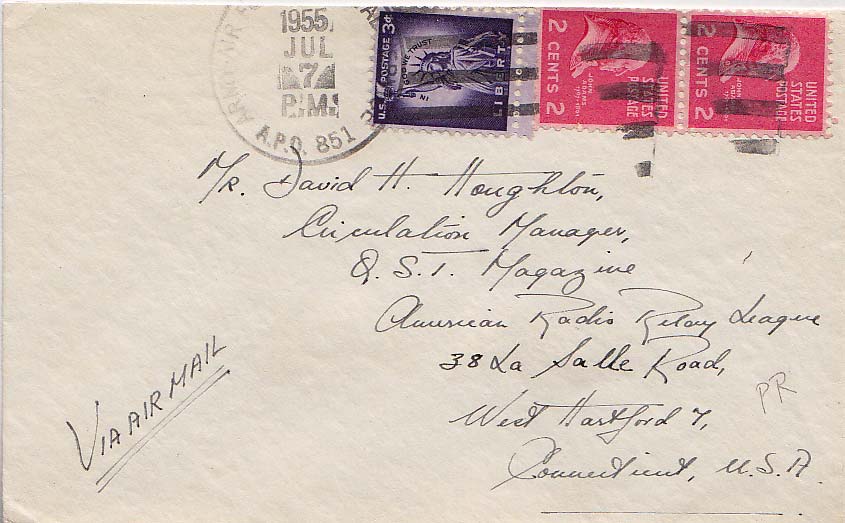 1955
JUL
7
P.M.
A.P.O. 851
U.S. POSTAGE 3¢
IN GOD WE TRUST
LIBERTY
2 CENTS 2
JOHN ADAMS
UNITED STATES POSTAGE
2 CENTS 2
JOHN ADAMS
UNITED STATES POSTAGE
Mr. David H. Houghton,
Circulation Manager,
Q.S.T. Magazine
American Radio Relay League
38 La Salle Road,
West Hartford 7,
Connecticut, U.S.A.
VIA AIR MAIL
PR